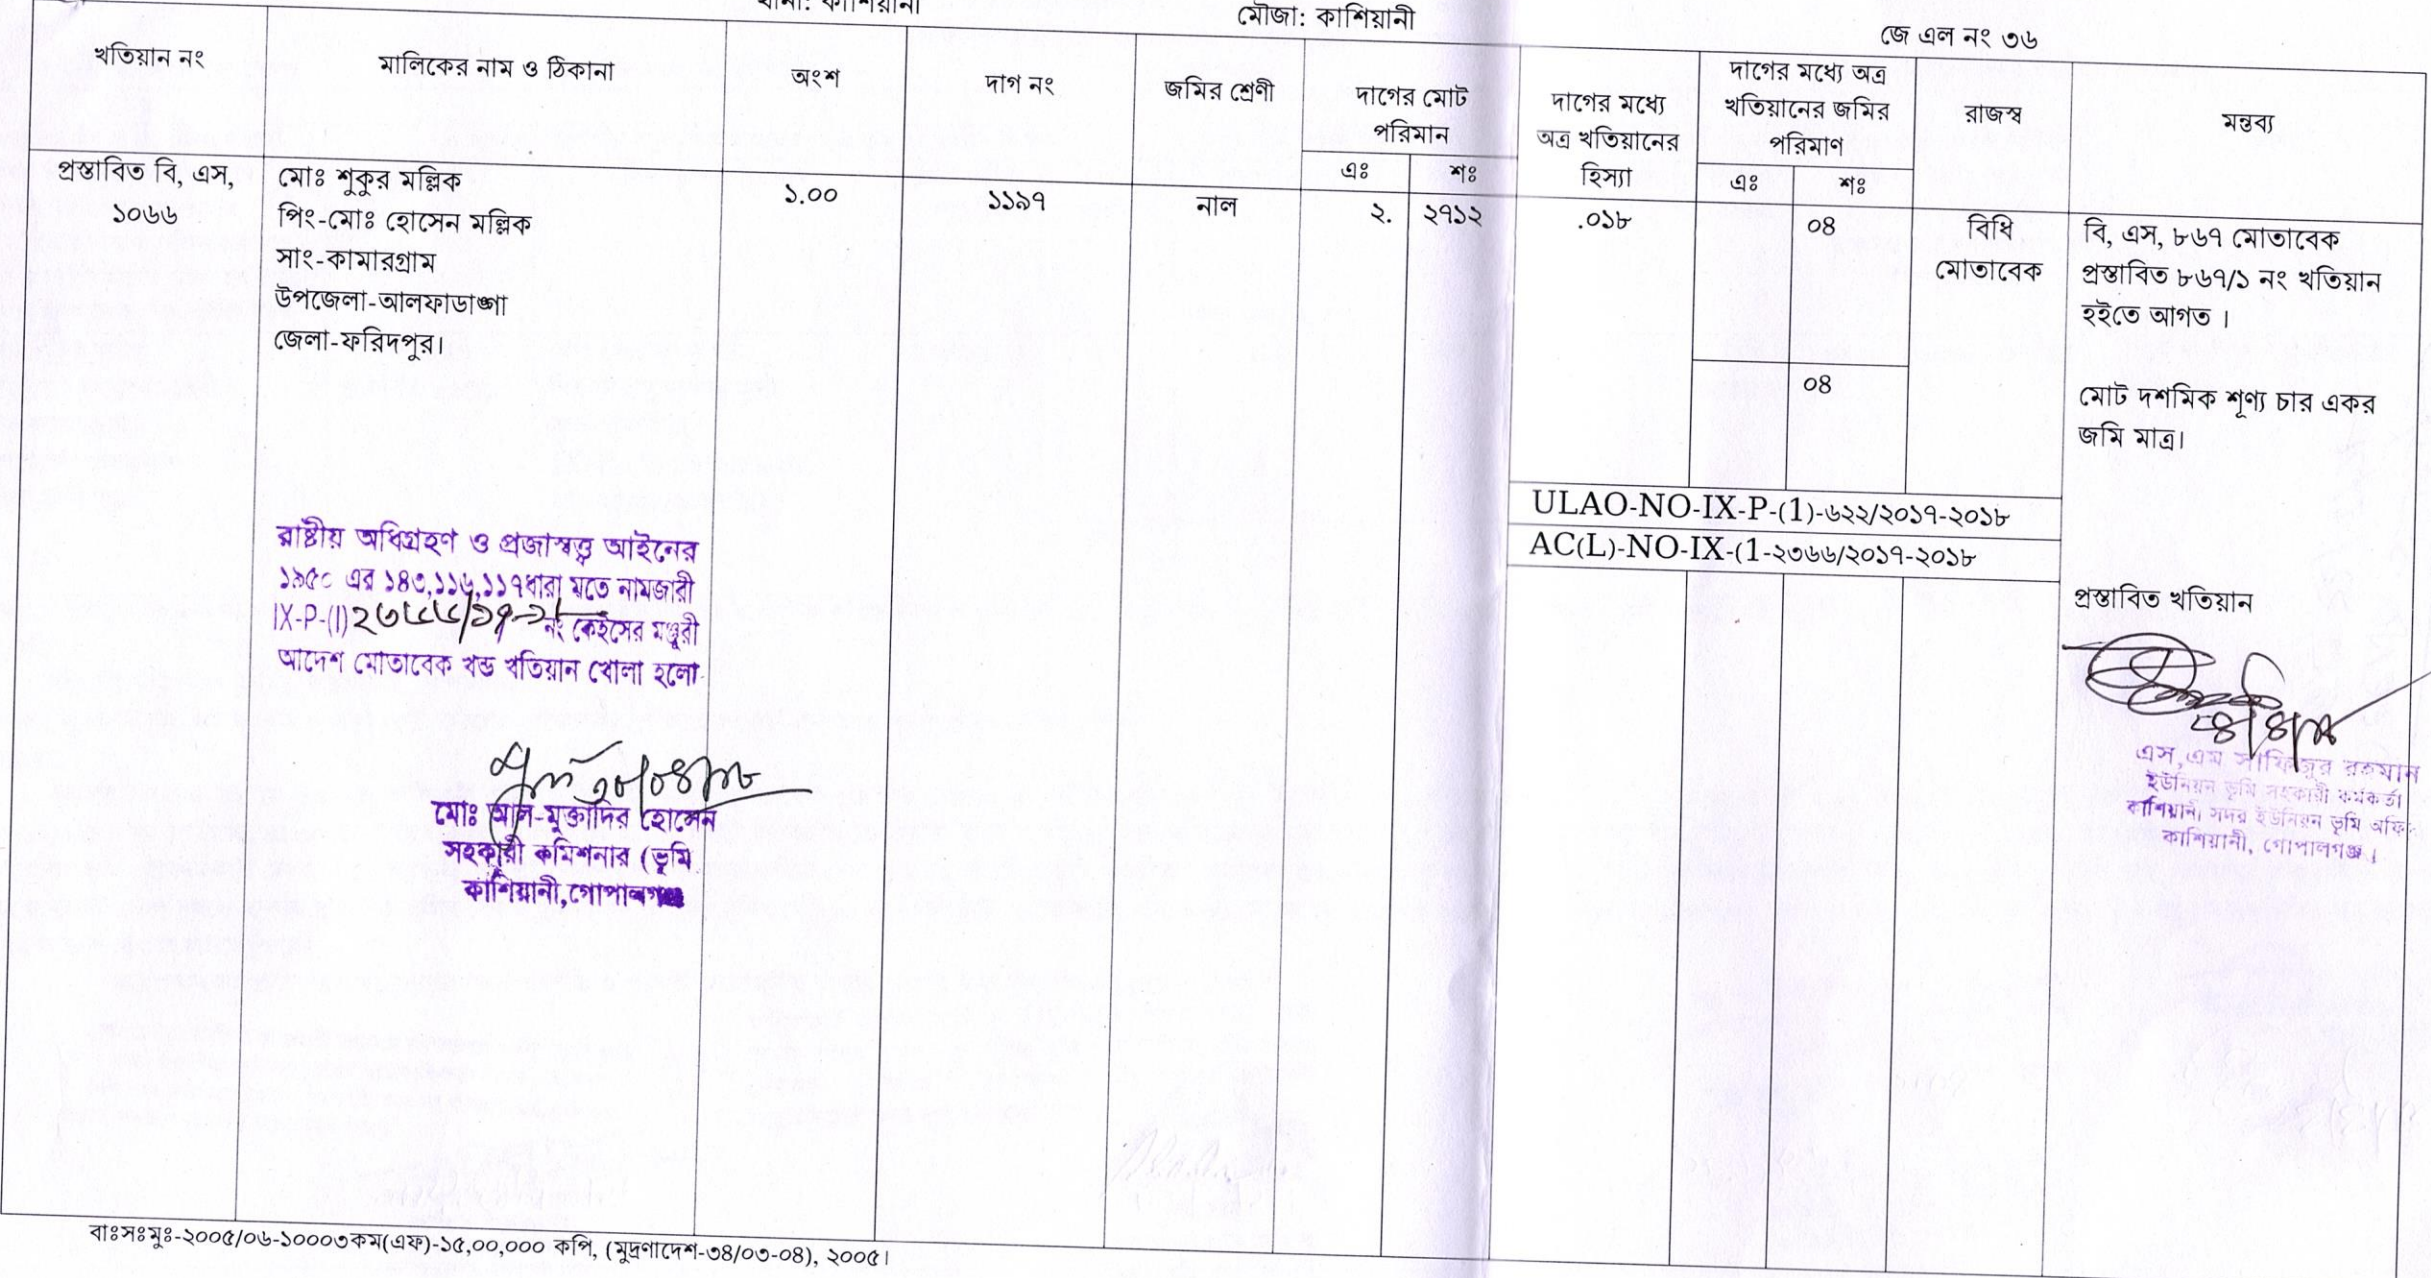 থানা: কাশিয়ানী
মৌজা: কাশিয়ানী
জে এল নং ৩৬
খতিয়ান নং
মালিকের নাম ও ঠিকানা
অংশ
দাগ নং
জমির শ্রেণী
দাগের মোট
পরিমান
এঃ শঃ
দাগের মধ্যে
অত্র খতিয়ানের
হিস্যা
দাগের মধ্যে অত্র
খতিয়ানের জমির
পরিমাণ
এঃ শঃ
রাজস্ব
মন্তব্য
প্রস্তাবিত বি, এস,
১০৬৬
মোঃ শুকুর মল্লিক
পিং-মোঃ হোসেন মল্লিক
সাং-কামারগ্রাম
উপজেলা-আলফাডাঙ্গা
জেলা-ফরিদপুর।
১.০০
১১৯৭
নাল
২. ২৭১২
.০১৮
০৪
০৪
বিধি
মোতাবেক
বি, এস, ৮৬৭ মোতাবেক
প্রস্তাবিত ৮৬৭/১ নং খতিয়ান
হইতে আগত ।
মোট দশমিক শূণ্য চার একর
জমি মাত্র।
ULAO-NO-IX-P-(1)-৬২২/২০১৭-২০১৮
AC(L)-NO-IX-(1-২৩৬৬/২০১৭-২০১৮
প্রস্তাবিত খতিয়ান
রাষ্টীয় অধিগ্রহণ ও প্রজাস্বত্ত্ব আইনের
১৯৫০ এর ১৪৩,১১৬,১১৭ধারা মতে নামজারী
IX-P-(I)২৩৬৬/১৭-১৮ নং কেইসের মঞ্জুরী
আদেশ মোতাবেক খন্ড খতিয়ান খোলা হলো
মোঃ আল-মুক্তাদির হোসেন
সহকারী কমিশনার (ভূমি
কাশিয়ানী,গোপালগঞ্জ
এস,এম সাফিজুর রহমান
ইউনিয়ন ভূমি সহকারী কর্মকর্তা
কাশিয়ানী সদর ইউনিয়ন ভূমি অফিস
কাশিয়ানী, গোপালগঞ্জ।
বাঃসঃমুঃ-২০০৫/০৬-১০০০৩কম(এফ)-১৫,০০,০০০ কপি, (মুদ্রণাদেশ-৩৪/০৩-০৪), ২০০৫।